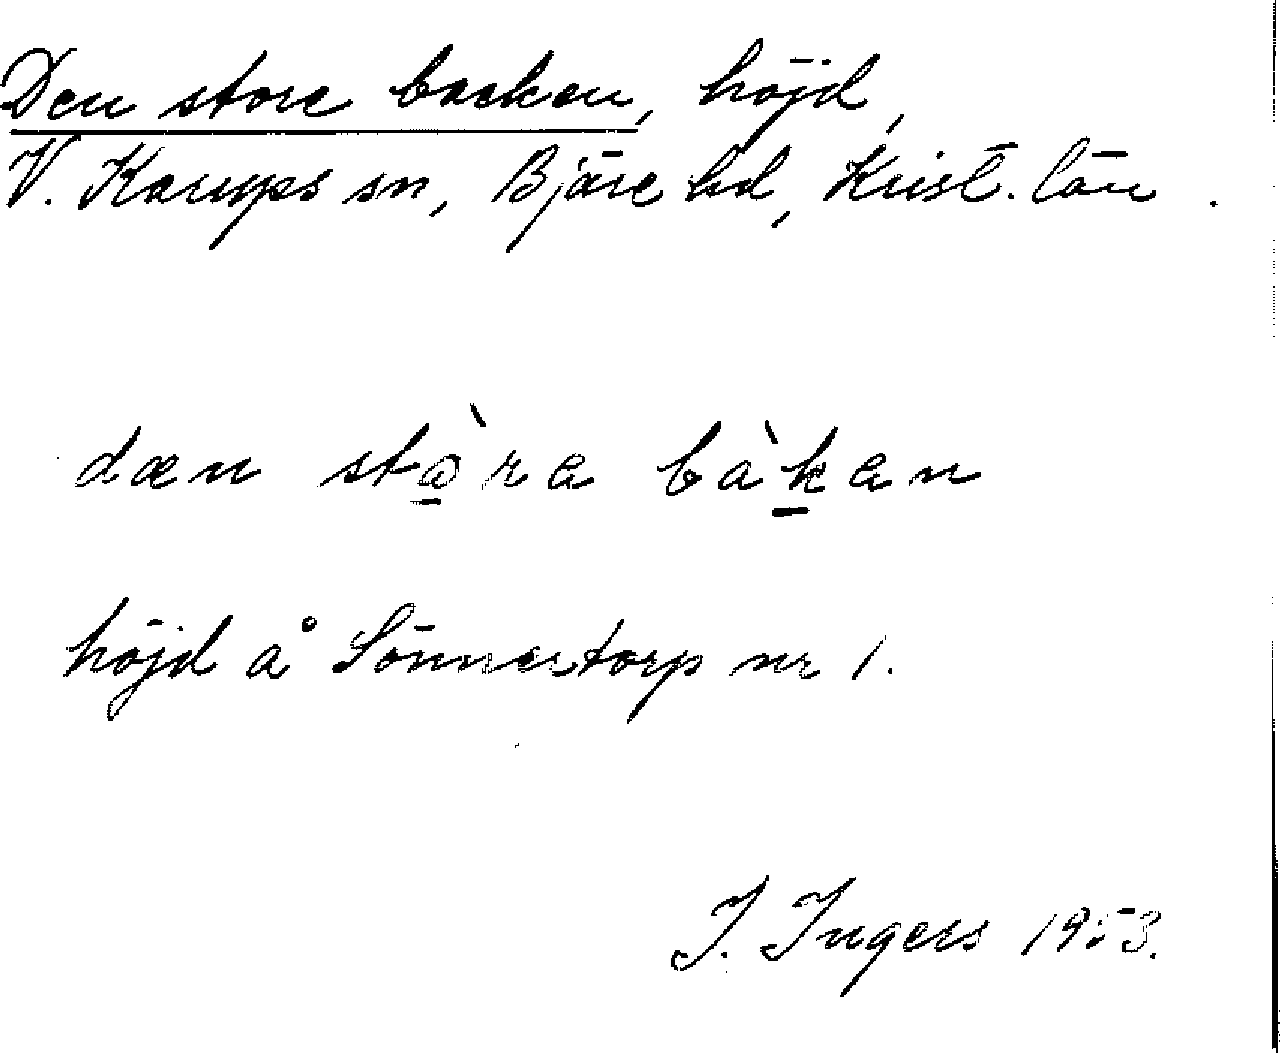 Den store backen, höjd,
V. Karups sn, Bjäre hd, Krist. län.
dæn stò̱ra bàḵan
höjd å Sönnertorp nr 1.
I. Ingers 1953.